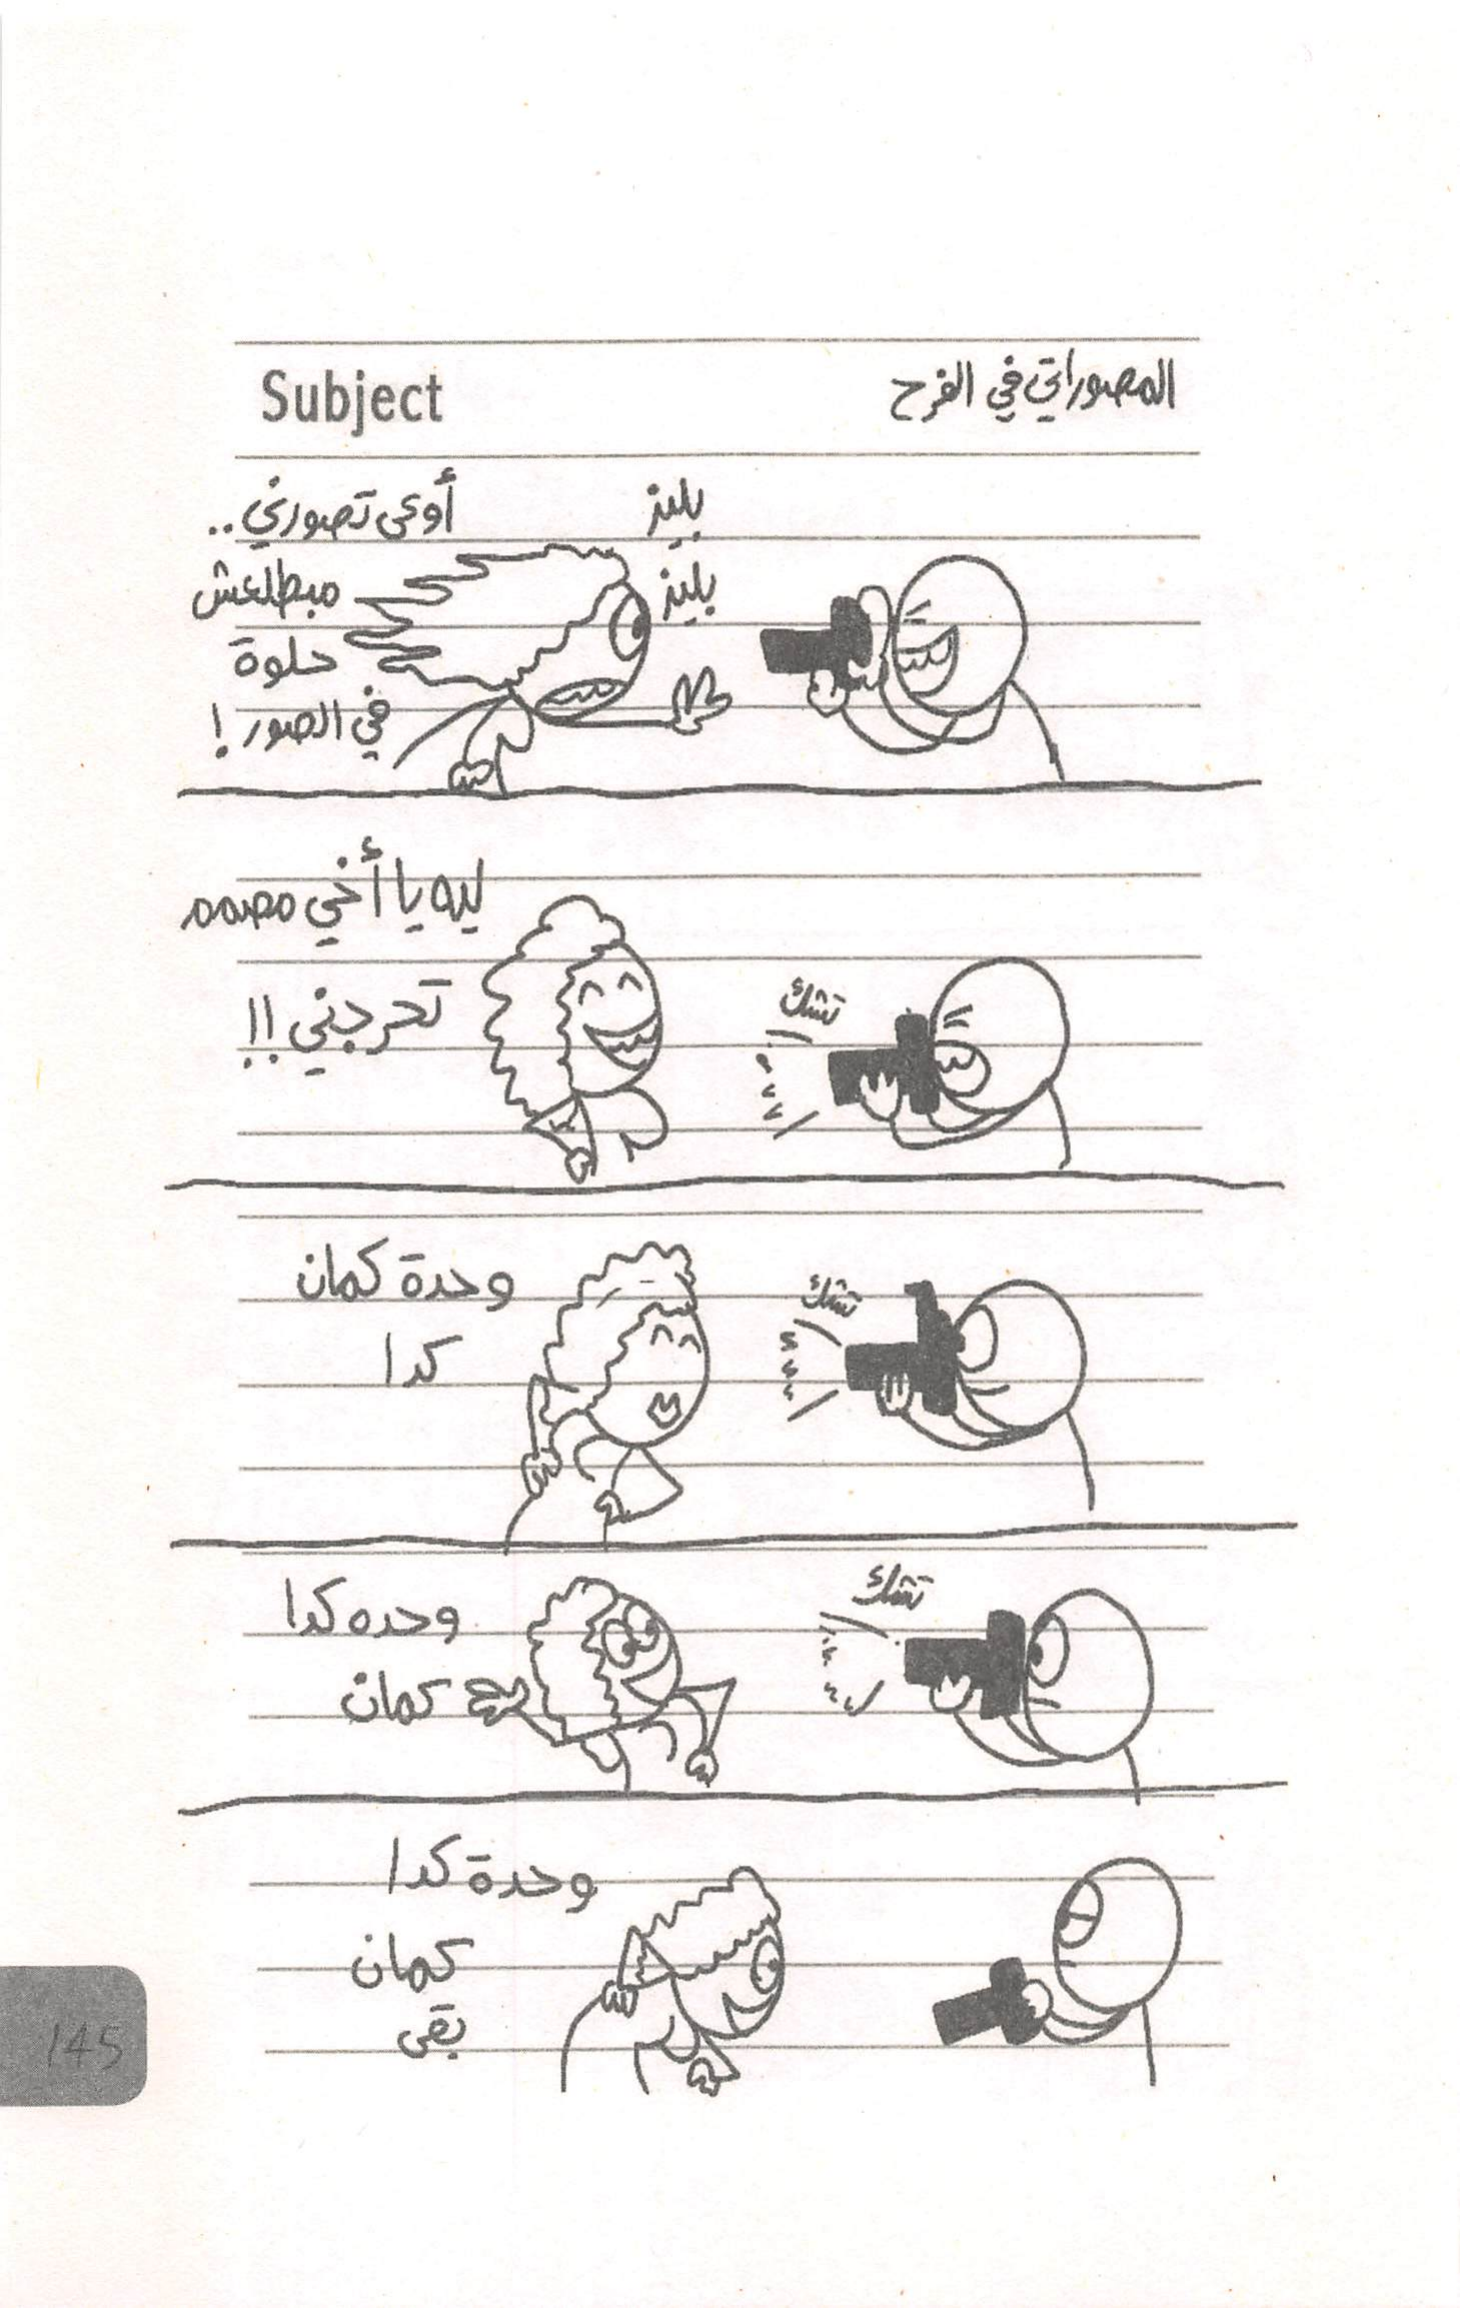 Subject
المصوراتي في الفرح
بليز
بليز
أوعى تصورني..
مبطلعش
حلوة
في الصور!
ليه يا أخي مصمم
تحرجني!!
تشك
وحدة كمان
كدا
تشك
وحده كدا
كمان
تشك
وحدة كدا
كمان
بقى
145